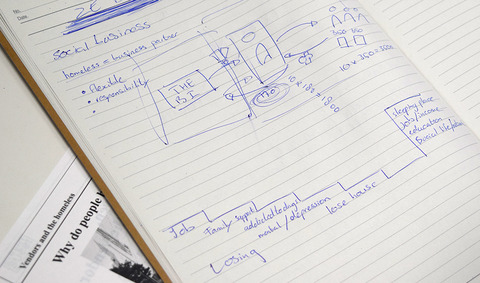 No.
Date
social business
homeless = business partner
• flexible
• responsibility
•
THE
B.I
350 150
10 x 350 = 3500
10 x 180 = 1800
sleeping place
Job/income
education
Social life/
Job
Family support
addicted to drugs
mental / depression
lose house
Losing
Vendors and the homeless
Why do people